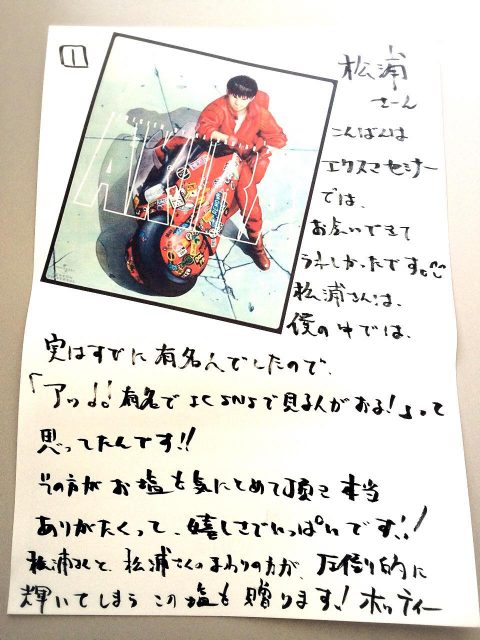 1
AKIRA
松浦
さーん
こんばんは
エクスマセミナー
では、
お会いできて
うれしかったです。
松浦さんは、
僕の中では、
実はすでに有名人でしたので、
「アッ!! 有名でよくSNSで見る人がおる!」って
思ってたんです!!
その方がお塩を気にとめて頂き 本当
ありがたくって、嬉しさでいっぱいです!!
松浦さんと、松浦さんのまわりの方が、圧倒的に
輝いてしまう この塩を 贈ります! ホッティー